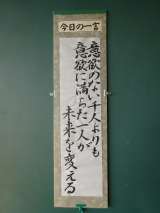 今日の一言
意欲のない千人よりも
意欲に満ちた一人が
未来を変える